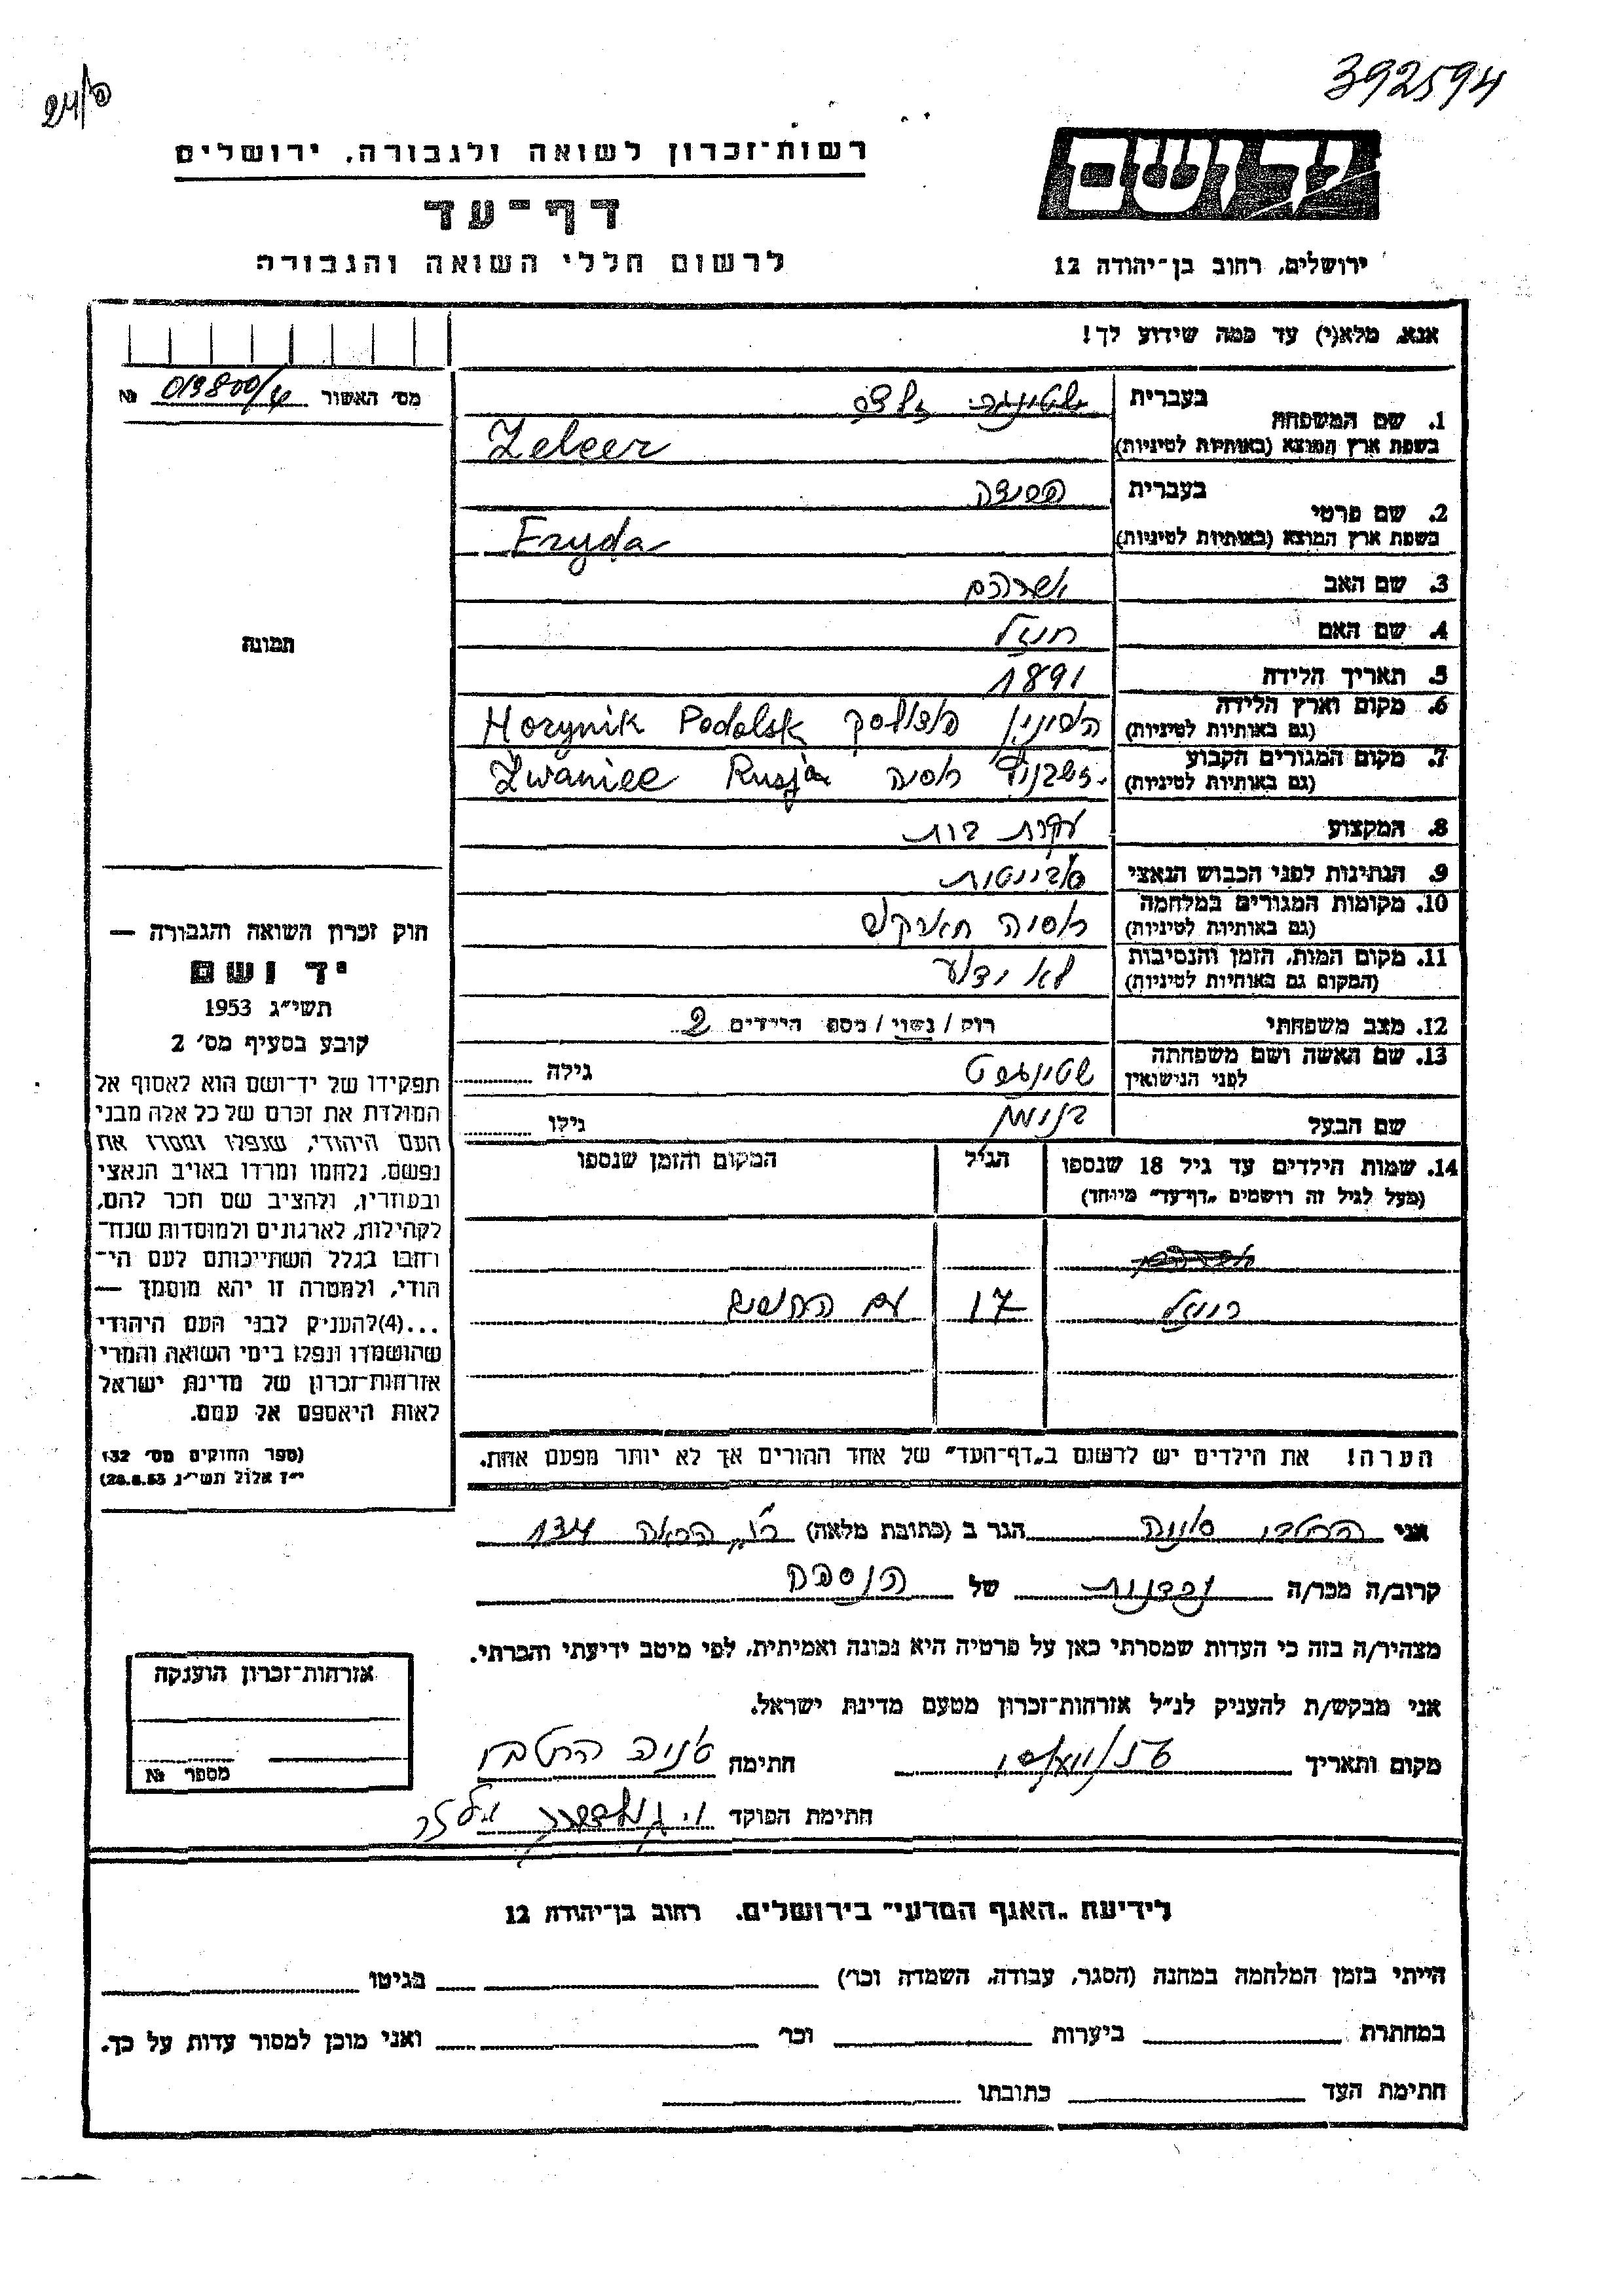 392594
רשות־זכרון לשואה ולגבורה, ירושלים
יד ושם
דף־עד
לרשום חללי השואה והגבורה
ירושלים, רחוב בן־יהודה 12
אנא, מלא(י) עד כמה שידוע לך!
מס' האשור № 013800/
1. שם המשפחה
בעברית
בשפת ארץ המוצא (באותיות לטיניות) Zelcer
2. שם פרטי
בעברית פרידה
בשפת ארץ המוצא (באותיות לטיניות) Fryda
3. שם האב אברהם
4. שם האם
5. תאריך הלידה 1891
6. מקום וארץ הלידה
(גם באותיות לטיניות) פודולסק Horynik Podolsk
7. מקום המגורים הקבוע
(גם באותיות לטיניות) רוסיה Zwaniec Rusja
8. המקצוע עקרת בית
9. הנתינות לפני הכבוש הנאצי סוביטית
10. מקומות המגורים במלחמה
(גם באותיות לטיניות) רוסיה
11. מקום המות, הזמן והנסיבות
(המקום גם באותיות לטיניות) לא ידוע
12. מצב משפחתי רווק / נשוי / מספר הילדים 2
13. שם האשה ושם משפחתה
לפני הנישואין גילה
שם הבעל גילו
14. שמות הילדים עד גיל 18 שנספו
(מעל לגיל זה רושמים „דף־עד” מיוחד)
הגיל
המקום והזמן שנספו
17 עם
הערה! את הילדים יש לרשום ב„דף־העד” של אחד ההורים אך לא יותר מפעם אחת.
תמונה
חוק זכרון השואה והגבורה —
יד ושם
תשי״ג 1953
קובע בסעיף מס' 2
תפקידו של יד־ושם הוא לאסוף אל
המולדת את זכרם של כל אלה מבני
העם היהודי, שנפלו ומסרו את
נפשם, נלחמו ומרדו באויב הנאצי
ובעוזריו, ולהציב שם וזכר להם,
לקהילות, לארגונים ולמוסדות שנח־
רבו בגלל השתייכותם לעם הי־
הודי, ולמטרה זו יהא מוסמך —
...(4) להעניק לבני העם היהודי
שהושמדו ונפלו בימי השואה והמרי
אזרחות־זכרון של מדינת ישראל
לאות היאספם אל עמם.
(ספר החוקים מס' 132
י״ז אלול תשי״ג 28.8.53)
אני סוניה הגר ב (כתובת מלאה) 134
קרוב/ה מכר/ה של
מצהיר/ה בזה כי העדות שמסרתי כאן על פרטיה היא נכונה ואמיתית, לפי מיטב ידיעתי והכרתי.
אני מבקש/ת להעניק לנ״ל אזרחות־זכרון מטעם מדינת ישראל.
מקום ותאריך חתימה סוניה
חתימת הפוקד
אזרחות־זכרון הוענקה
מספר №
לידיעת „האגף המדעי” בירושלים, רחוב בן־יהודה 12
הייתי בזמן המלחמה במחנה (הסגר, עבודה, השמדה וכו') בגיטו
במחתרת ביערות וכו' ואני מוכן למסור עדות על כך.
חתימת העד כתובתו